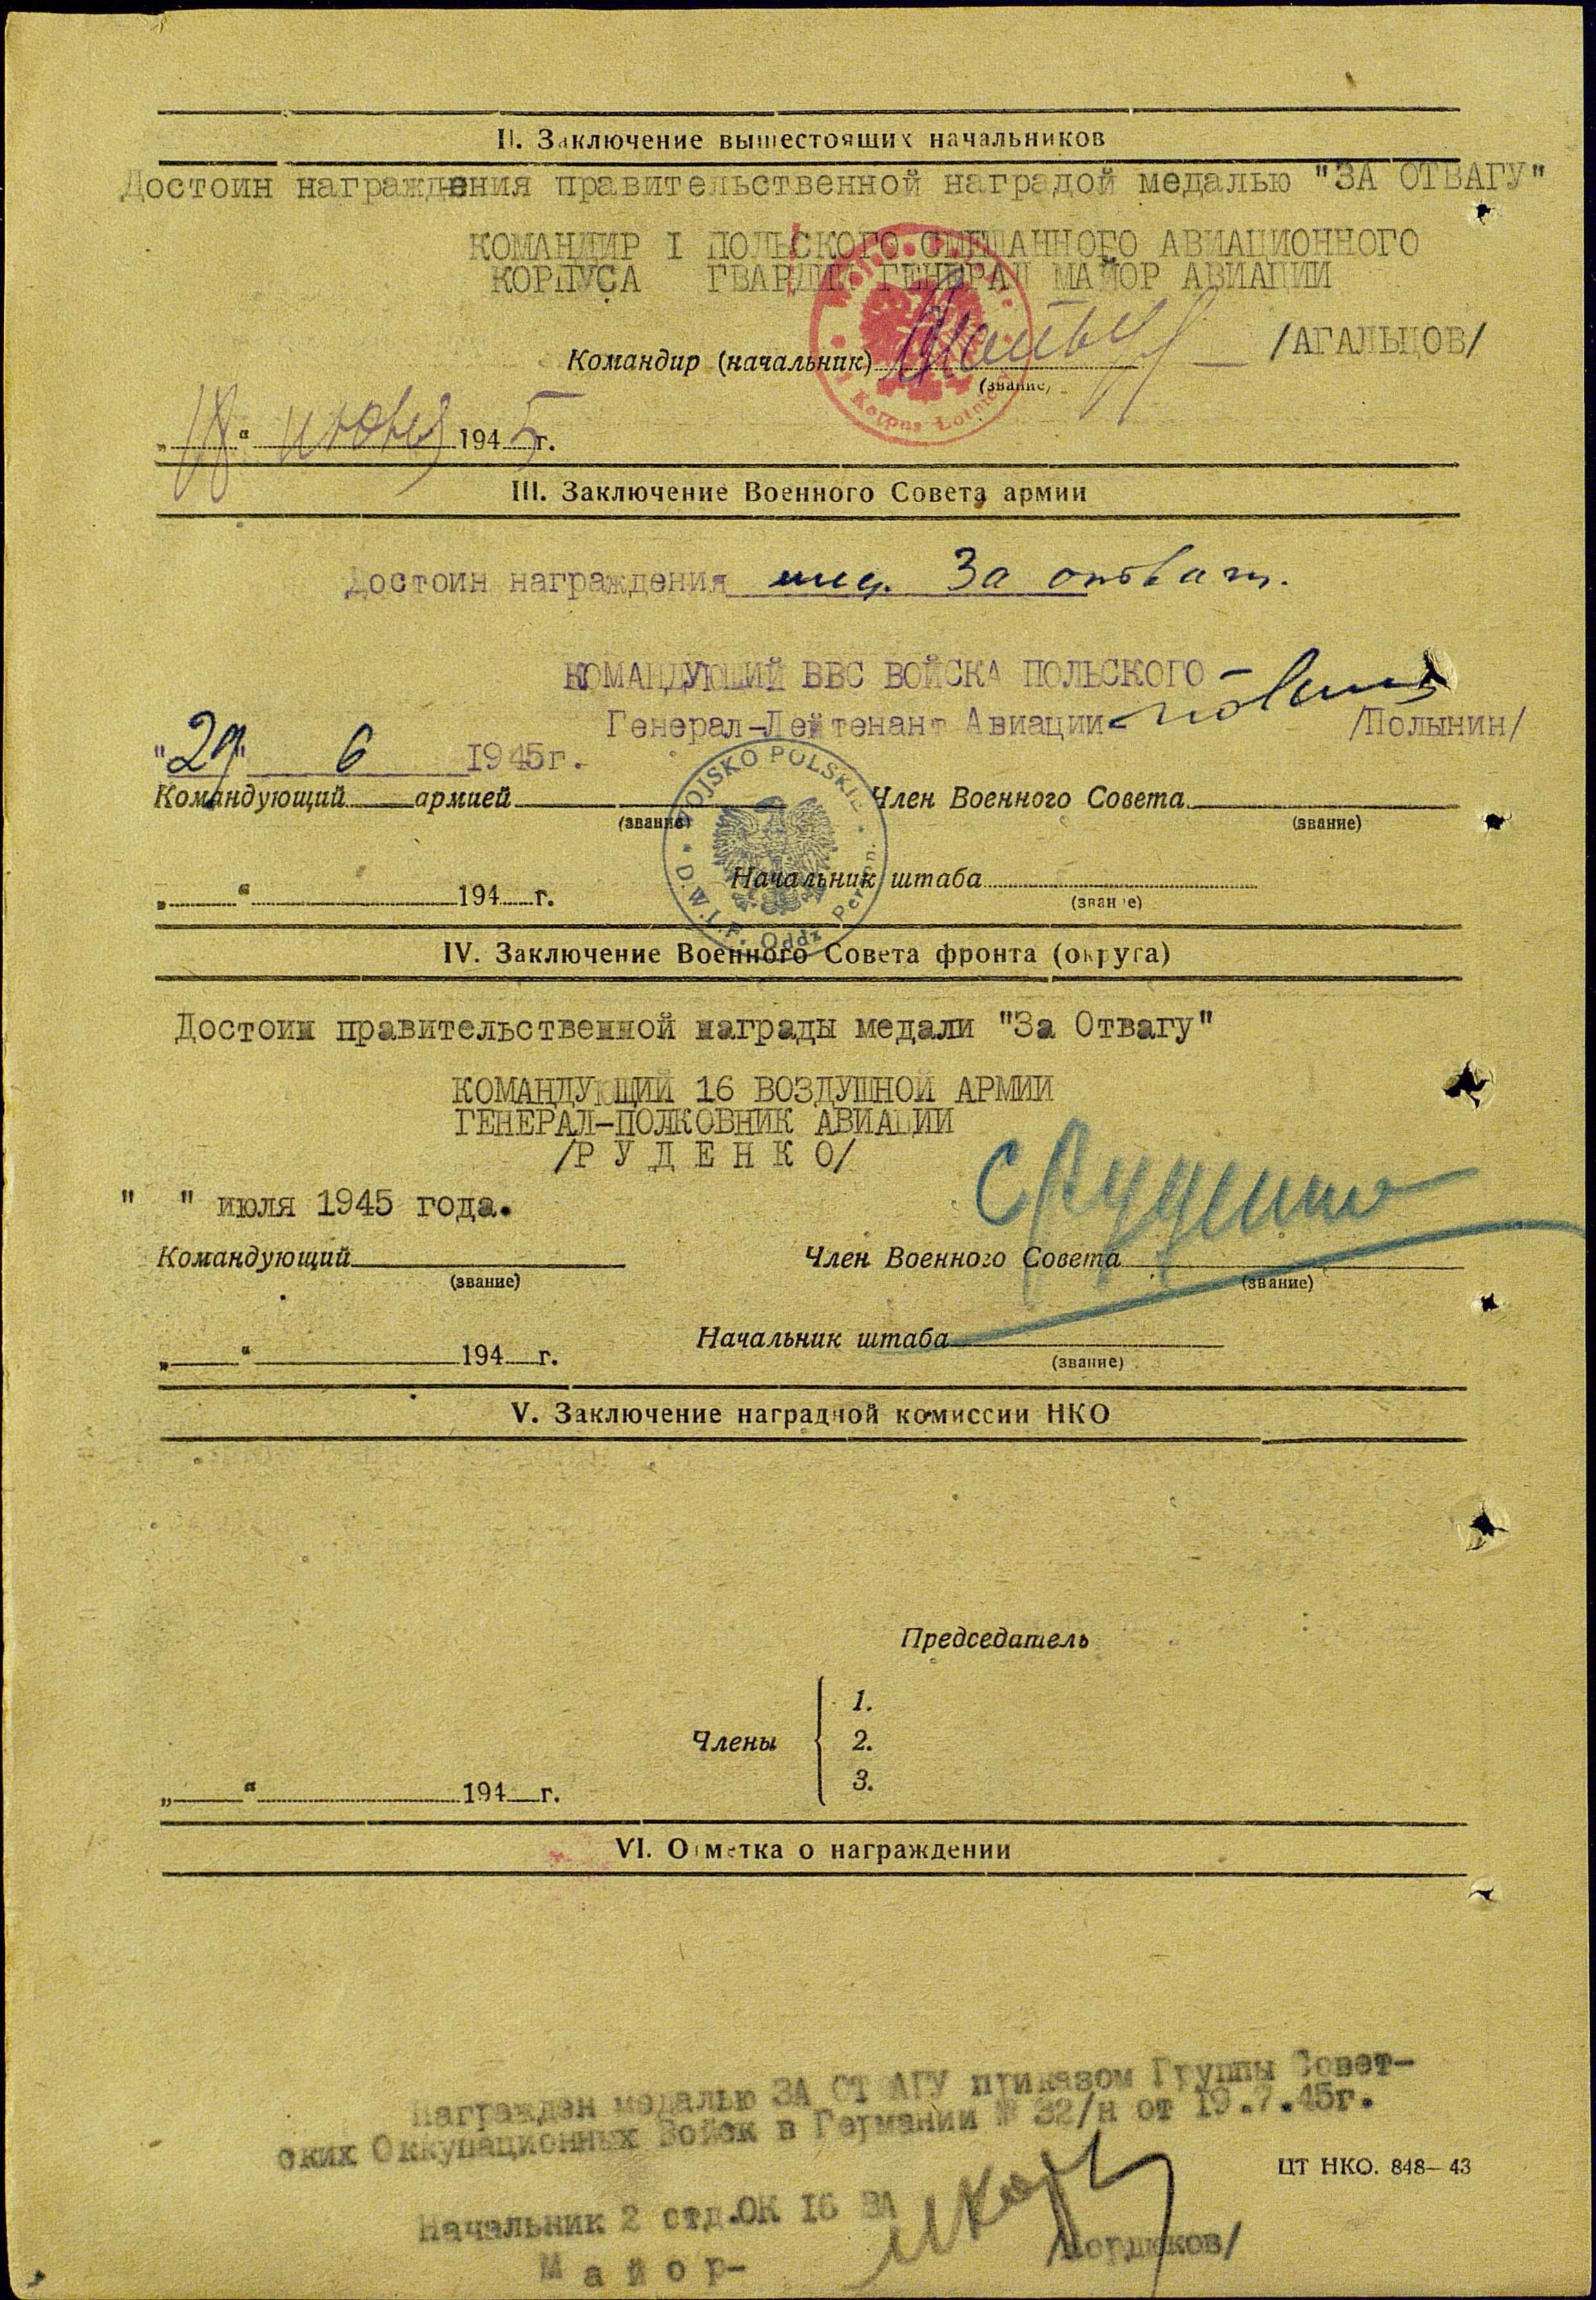 II. Заключение вышестоящих начальников
Достоин награждения правительственной наградой медалью "ЗА ОТВАГУ"
КОМАНДИР I ПОЛЬСКОГО СМЕШАННОГО АВИАЦИОННОГО
КОРПУСА ГВАРДИИ ГЕНЕРАЛ МАЙОР АВИАЦИИ
/АГАЛЬЦОВ/
Командир (начальник)
(звание)
Korpus Lotniczy
„18“ июня 1945 г.
III. Заключение Военного Совета армии
Достоин награждения мед. За отвагу.
КОМАНДУЮЩИЙ ВВС ВОЙСКА ПОЛЬСКОГО
Генерал-Лейтенант Авиации /Полынин/
"29" 6 1945г.
WOJSKO POLSKIE
D.W.L.P. Oddz. Person.
Командующий армией Член Военного Совета
(звание) (звание)
Начальник штаба
„ “ 194 г. (звание)
IV. Заключение Военного Совета фронта (округа)
Достоин правительственной награды медали "За Отвагу"
КОМАНДУЮЩИЙ 16 ВОЗДУШНОЙ АРМИИ
ГЕНЕРАЛ-ПОЛКОВНИК АВИАЦИИ
/Р У Д Е Н К О/
С Руденко
" " июля 1945 года.
Командующий Член Военного Совета
(звание) (звание)
Начальник штаба
„ “ 194 г. (звание)
V. Заключение наградной комиссии НКО
Председатель
1.
Члены 2.
3.
„ “ 194 г.
VI. Отметка о награждении
Награжден медалью ЗА ОТ АГУ приказом Группы Совет-
ских Оккупационных Войск в Германии № 32/н от 19.7.45г.
ЦТ НКО. 848—43
Начальник 2 отд.ОК 16 ВА
М а й о р-